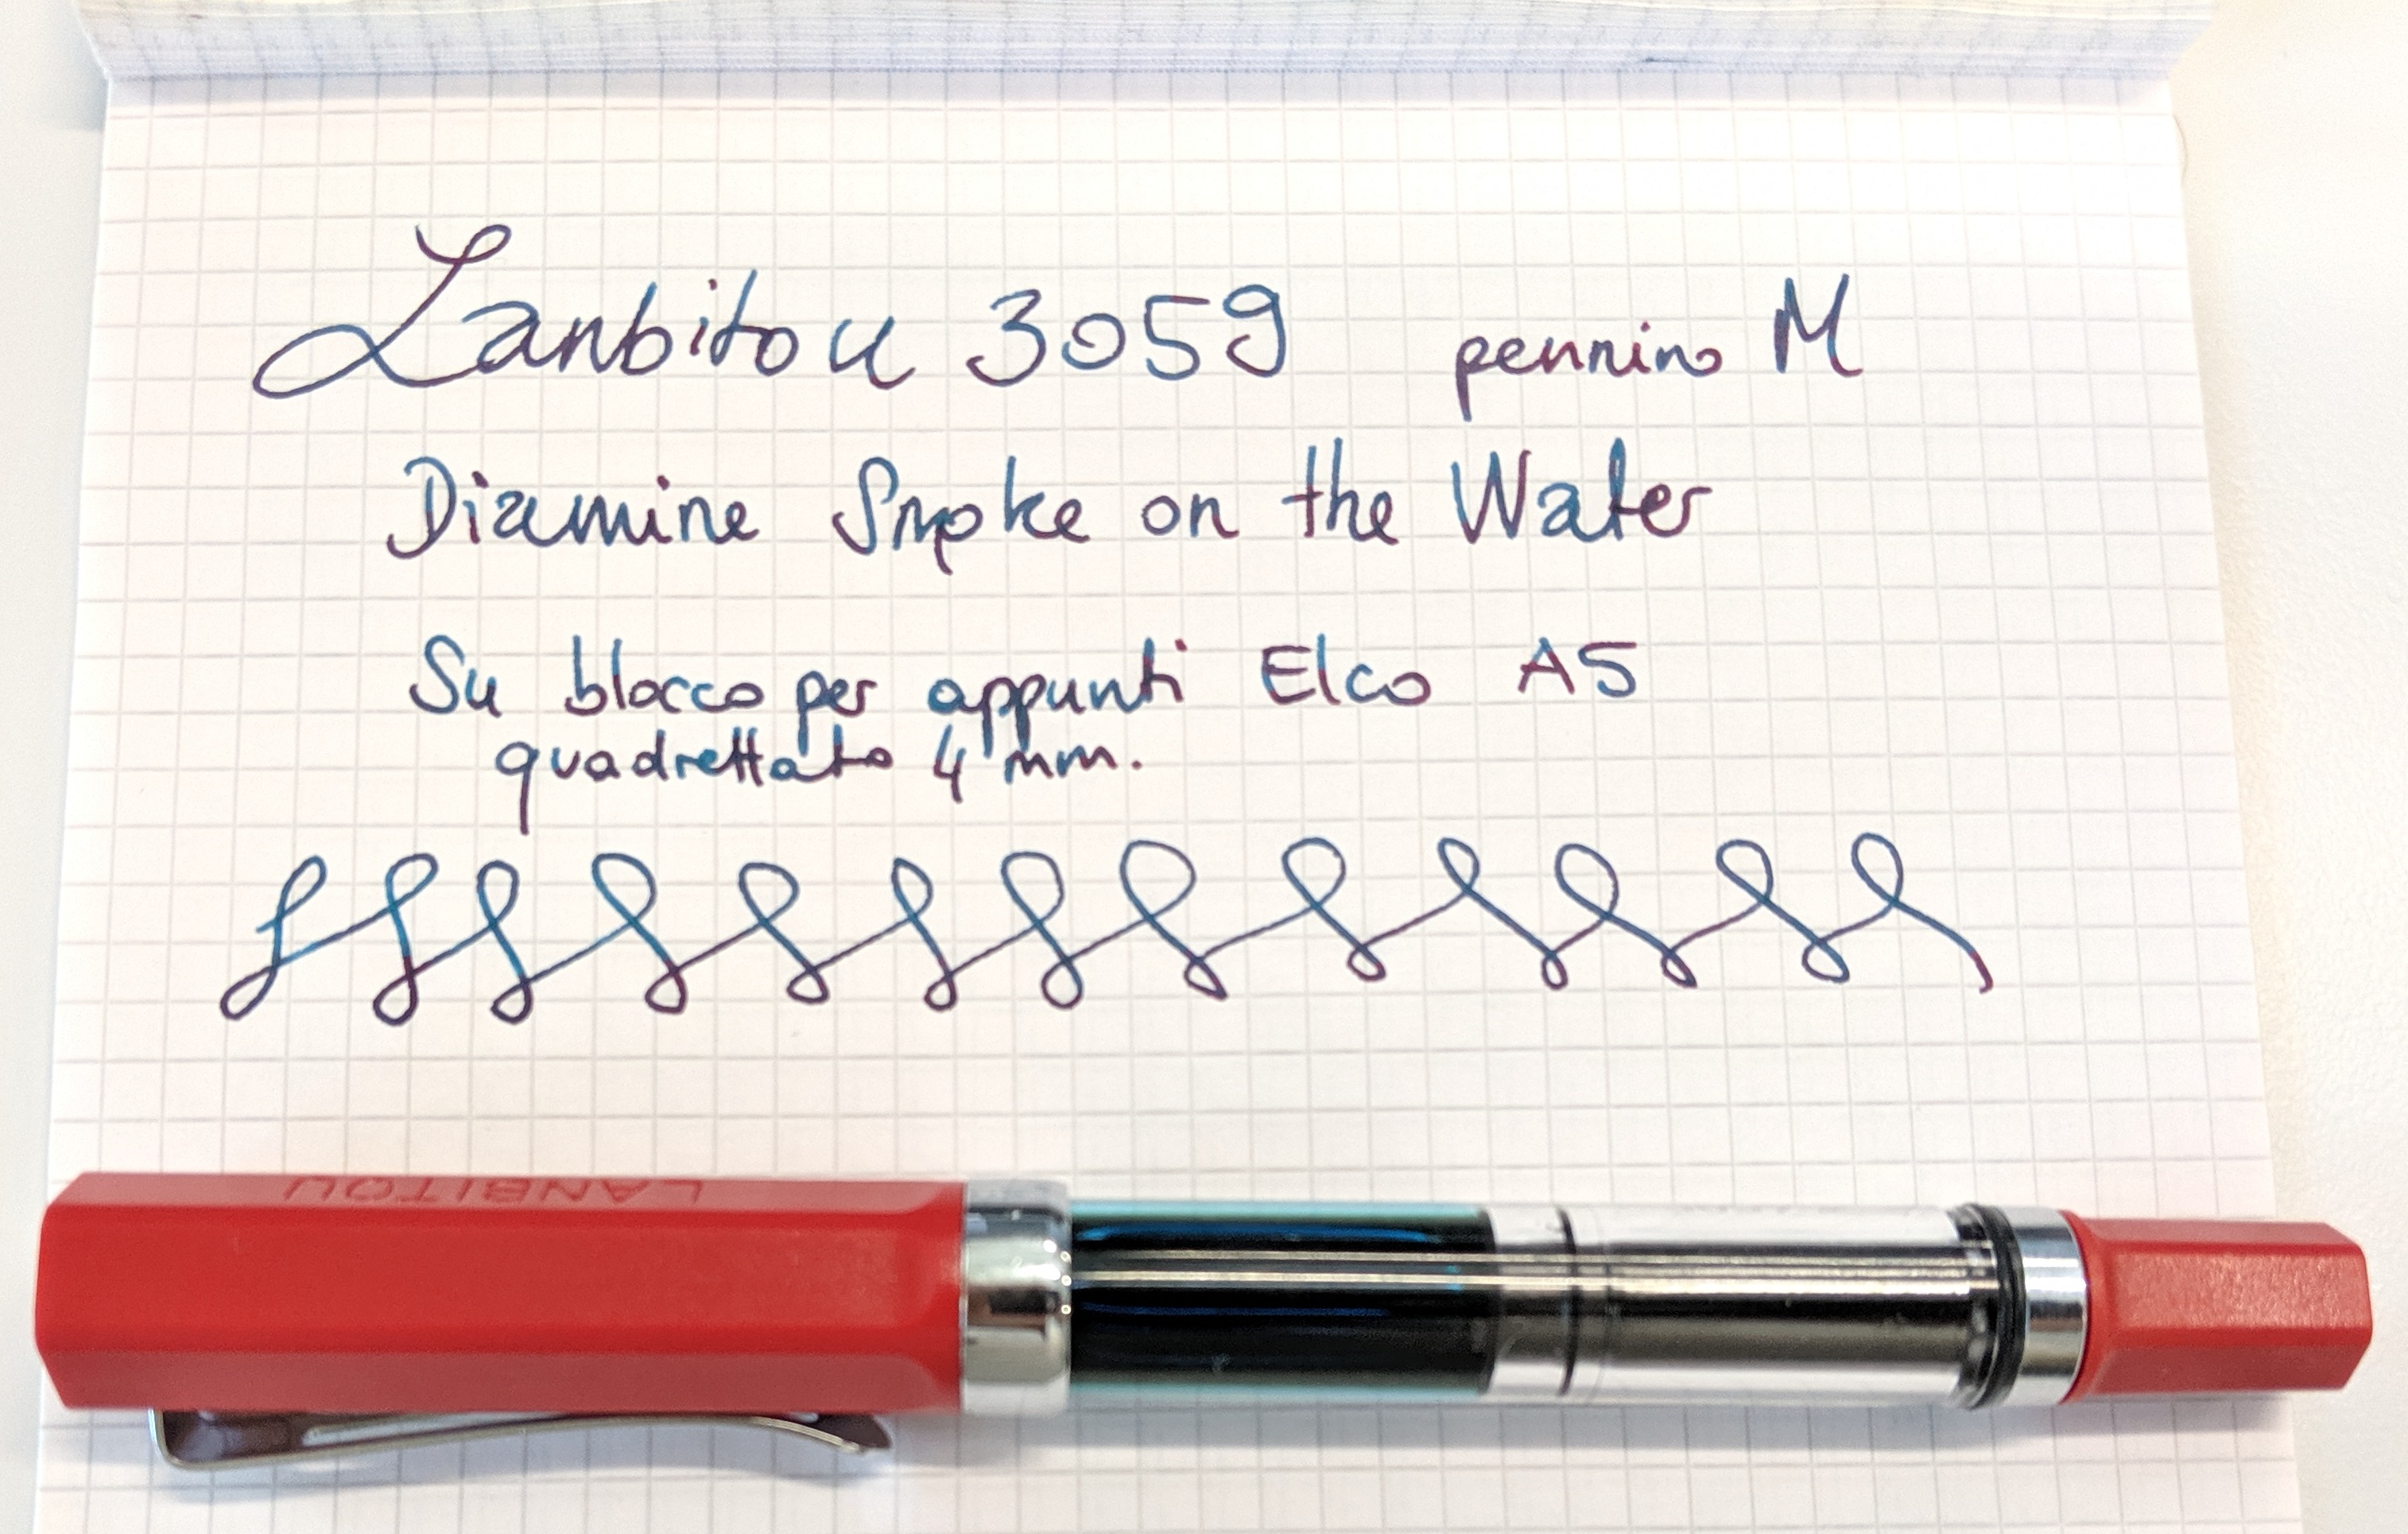 Lanbitou 3059 pennino M
Diamine Smoke on the Water
Su blocco per appunti Elco A5
quadrettato 4 mm.
LANBITOU